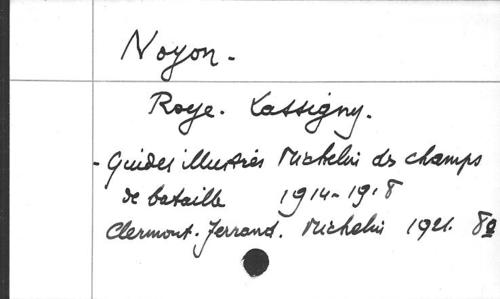 Noyon.
Roye. Lassigny.
- Guides illustrés Michelin des champs
de bataille 1914-1918
Clermont-Ferrand. Michelin 1921. 8º